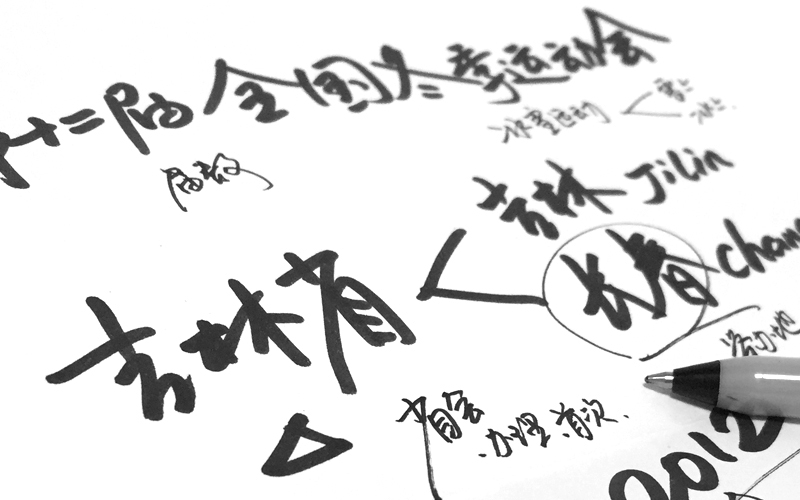 十二届全国冬季运动会
冰雪运动
雪上
冰上
届数
吉林 Jilin
吉林省
长春 chan
举办地
省会
办理 首次
2012